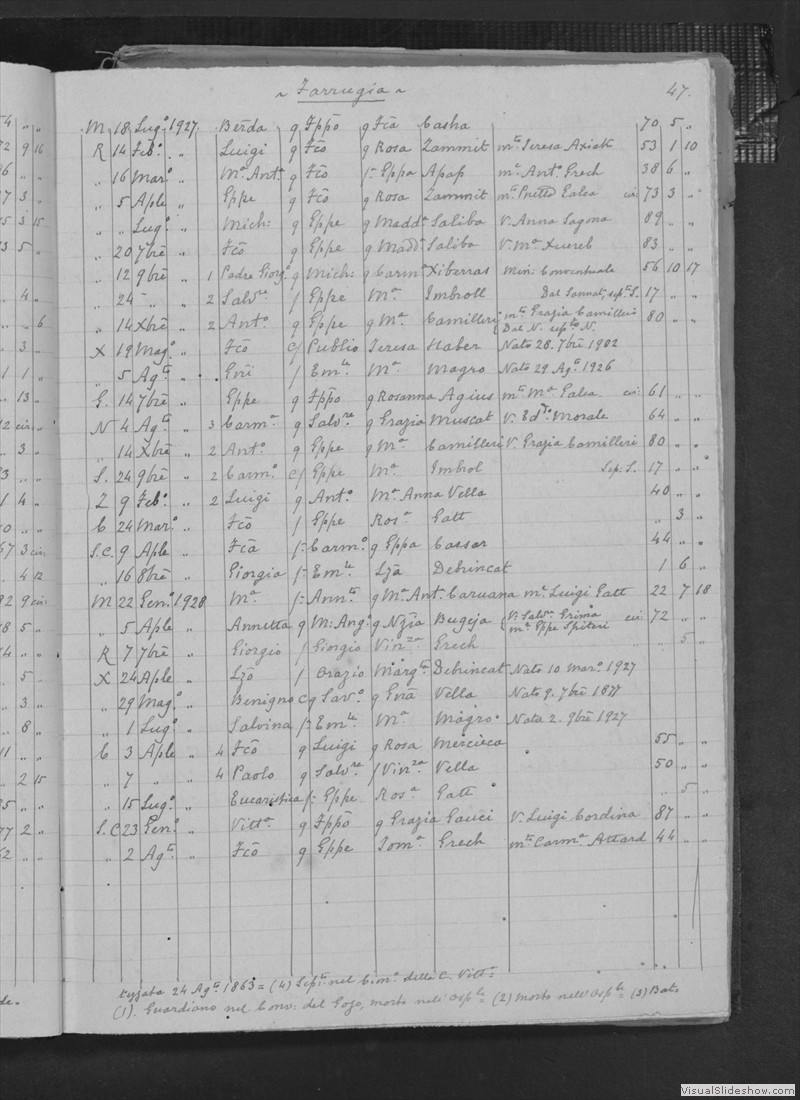 ~ Farrugia ~ 47.
M 18 Lugo 1927 Berda g Fppo g Fca Casha 70 5 "
R 14 Febo " Luigi g Fco g Rosa Zammit mta Teresa Axiak 53 1 10
" 16 Maro " Ma Anta g Fco f= Eppa Apap ma Anto Grech 38 6 "
" 5 Aple " Eppe g Fco g Rosa Zammit cir 73 3 "
" " Lugo " Mich: g Eppe g Madda Saliba V. Anna Sagona 89 " "
" 20 7bre " Fco g Eppe g Madda Saliba V. Ma Xuereb 83 " "
" 12 9bre " 1 Padre Giorgo g Mich: g Carma Xiberras Min: Conventuale 56 10 17
" 24 " " 2 Salvre f Eppe Ma Imbroll Dal Sannat, septo S. 17 " "
" 14 Xbre " 2 Anto g Eppe g Ma Camilleri { mto Grazia Camilleri Dal N. septo N. 80 " "
X 19 Mago " Fco c/ Publio Teresa Haber Nato 28. 7bre 1902
" 5 Agto " Gni f Emle Ma Magro Nato 29 Ago 1926
G. 14 7bre " Eppe g Fppo g Rosanna Agius mto Ma Galea cir: 61 " "
N 4 Agto " 3 Carma g Salvre g Grazia Muscat V. Eddo Morale 64 " "
" 14 Xbre " 2 Anto g Eppe g Ma Camilleri V. Grazia Camilleri 80 " "
S. 24 9bre " 2 Carmo c/ Eppe Ma Imbrol Sep. S. 17 " "
Z 9 Febo " 2 Luigi g Anto Ma Anna Vella 40 " "
C 24 Maro " Fco f Eppe Rosa Gatt " 3 "
S.C. 9 Aple " Fca f= Carmo g Eppa Cassar 44 " "
" 16 8bre " Giorgia f= Emle Lza Debrincat 1 6 "
M 22 Geno 1928 Ma f= Annto g Ma Ant. Caruana ma Luigi Gatt 22 7 18
" 5 Aple " Annetta g M: Ang: g Nzia Bugeja { V. Salvo Grima ma Eppe Spiteri cir: 72 " "
R 7 7bre " Giorgio f Giorgio Vinza Grech " 5 "
X 24 Aple " Lzo f Orazio Margta Debrincat Nato 10 maro 1927
" 29 Mago " Benigno c g Savo g Gna Vella Nato 9. 7bre 1877
" 1 Lugo " Salvina f= Emle Ma Magro Nata 2. 9bre 1927
C 3 Aple " 4 Fco g Luigi g Rosa Mercieca 55 " "
" 7 " " 4 Paolo g Salvre f Vinza Vella 50 " "
" 15 Lugo " Eucaristica f= Eppe Rosa Gatt " 5 "
S.C 23 Geno " Vitta g Fppo g Grazia Gauci V. Luigi Cordina 87 " "
" 2 Agto " Fco g Eppe Toma Grech mto Carma Attard 44 " "
24 Agto 1863 = (4) Septi nel Cimo della C. Vitta
(1). Guardiano nel Conv: del Gozo, morto nell' Osple = (2) Morto nell' Osple = (3) Bat:
VisualSlideshow.com